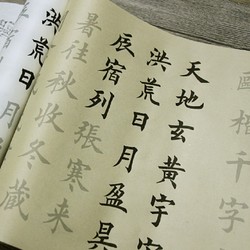 歐楷千字
天地玄黃宇
洪荒日月盈昃
辰宿列張寒来
暑往秋收冬藏
洪荒日